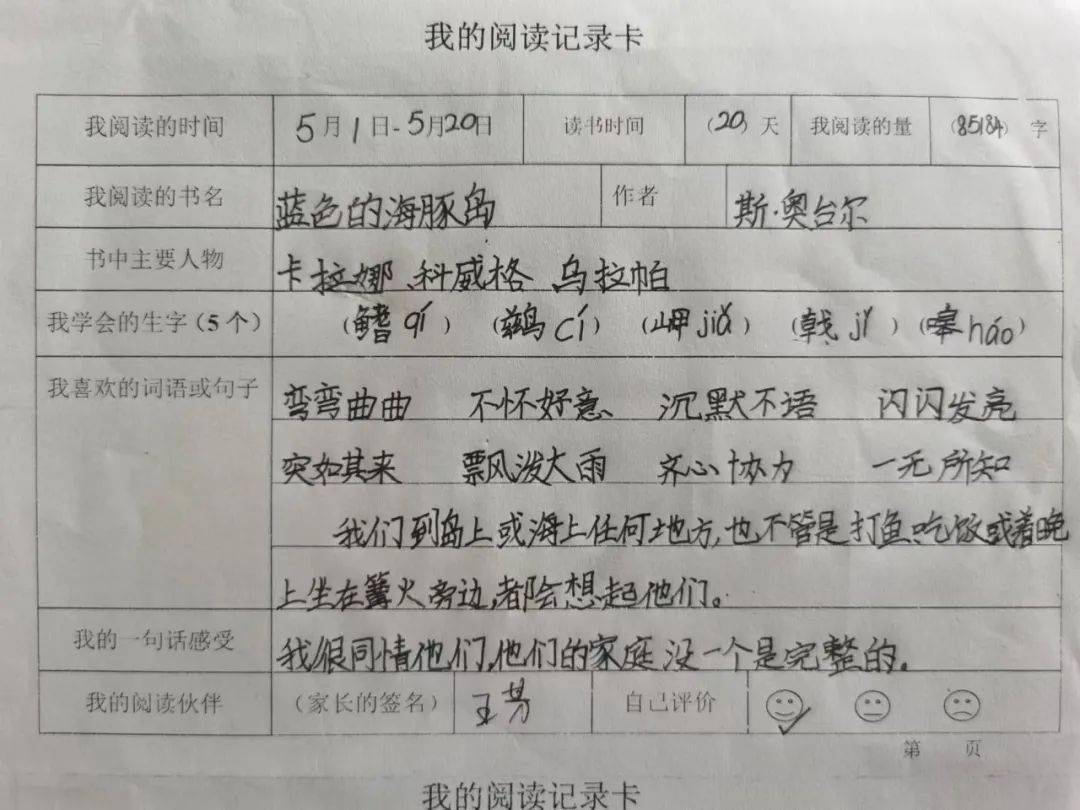 我的阅读记录卡
我阅读的时间 5月1日-5月20日 读书时间 (20)天 我阅读的量 (85184)字
我阅读的书名 蓝色的海豚岛 作者 斯·奥台尔
书中主要人物 卡拉娜、科威格 乌拉帕
我学会的生字(5个) (鳍qí) (鹚cí) (岬jiǎ) (戟jǐ) (嗥háo)
我喜欢的词语或句子 弯弯曲曲 不怀好意 沉默不语 闪闪发亮
突如其来 飘风泼大雨 齐心协力 一无所知
我们到岛上或海上任何地方,也不管是打鱼吃饭或着晚
上坐在篝火旁边,都会想起他们。
我的一句话感受 我很同情他们,他们的家庭没一个是完整的。
我的阅读伙伴 (家长的签名) 王芳 自己评价
第 页
我的阅读记录卡